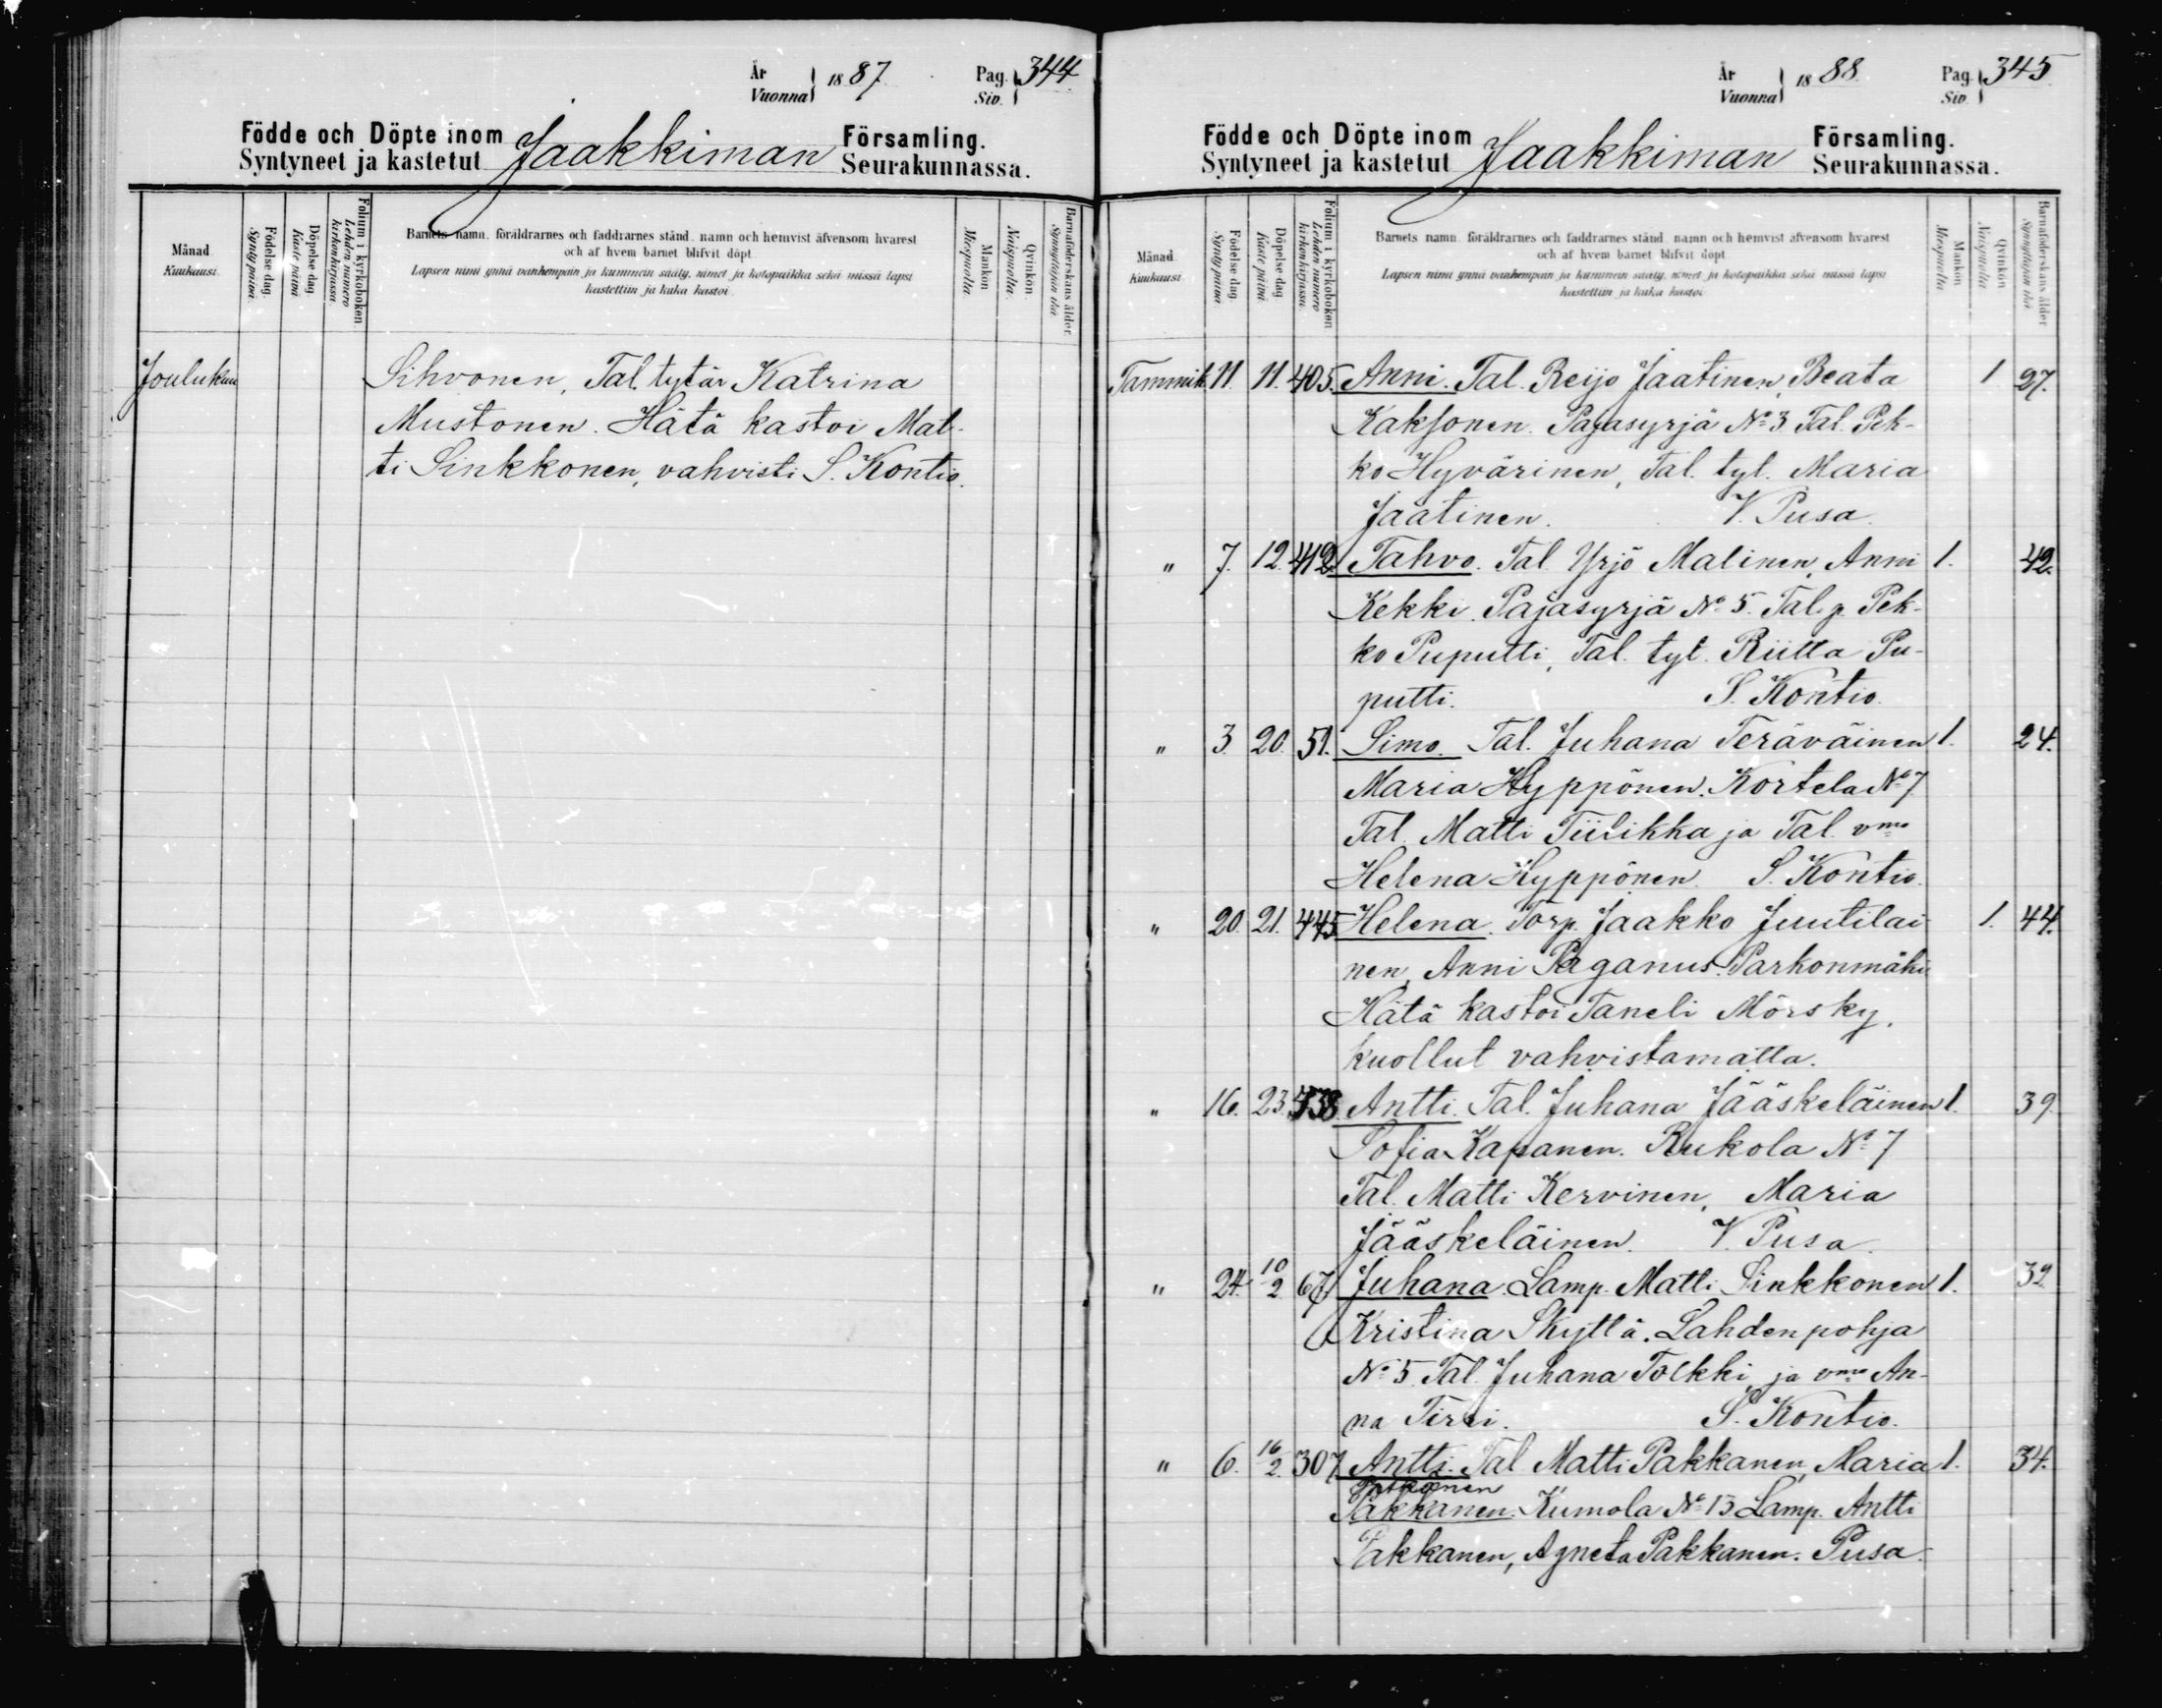 År
Vuonna 1887. Pag. Siv. 344
Födde och Döpte inom Jaakkiman Församling.
Syntyneet ja kastetut Seurakunnassa.
Månad
Kuukausi.
Födelse dag.
Synty päivä.
Döpelse dag
Kaste päivä
Folium i kyrkoboken
Lehden numero
kirkonkirjassa.
Barnets namn, föräldrarnes och faddrarnes stånd, namn och hemvist äfvensom hvarest
och af hvem barnet blifvit döpt.
Lapsen nimi ynnä vanhempain ja kummein sääty, nimet ja kotopaikka sekä missä lapsi
kastettiin ja kuka kastoi.
Mankön
Miespuolia
Qvinkön.
Naispuolia.
Barnaföderskans ålder.
Synnyttäjän ikä
Joulukuu Sihvonen, Tal. tytär Katrina
Mustonen. Hätä kastoi Mat-
ti Sinkkonen, vahvisti S. Kontio.
År
Vuonna 1888. Pag. Siv. 345.
Födde och Döpte inom Jaakkiman Församling.
Syntyneet ja kastetut Seurakunnassa.
Månad
Kuukausi.
Födelse dag
Synty päivä
Döpelse dag
Kaste päivä
Folium i kyrkoboken
Lehden numero
kirkonkirjassa.
Barnets namn, föräldrarnes och faddrarnes stånd, namn och hemvist äfvensom hvarest
och af hvem barnet blifvit döpt.
Lapsen nimi ynnä vanhempain ja kummein sääty, nimet ja kotopaikka sekä missä lapsi
kastettiin ja kuka kastoi.
Mankön
Miespuolia
Qvinkön
Naispuolia
Barnaföderskans ålder
Synnyttäjän ikä
Tammik. 11. 11. 405. Anni. Tal. Reijo Jaatinen, Beata 1 27.
Kaksonen. Pajasyrjä No 3. Tal. Pek-
ko Hyvärinen, Tal. tyt. Maria
Jaatinen. V. Pusa.
" 7. 12. 412. Tahvo. Tal. Yrjö Malinen, Anni 1. 42.
Kekki. Pajasyrjä No 5. Tal. p. Pek-
ko Puputti, Tal. tyt. Riitta Pu-
putti. S. Kontio.
" 3. 20. 51. Simo. Tal. Juhana Teräväinen 1. 24.
Maria Hyppönen. Kortela No 7
Tal. Matti Tiilikka ja Tal. vmo
Helena Hyppönen. S. Kontio.
" 20. 21. 445 Helena. Torp. Jaakko Juutilai 1. 44.
nen, Anni Paganus. Parkonmäki
Hätä kastoi Taneli Mörsky,
kuollut vahvistamatta.
" 16. 23. 538 Antti. Tal. Juhana Jääskeläinen 1. 39.
Sofia Kapanen. Rukola No 7
Tal. Matti Kervinen, Maria
Jääskeläinen. V. Pusa.
" 24. 10/2 67 Juhana. Lamp. Matti Sinkkonen 1. 32
Kristina Skyttä. Lahdenpohja
No 5. Tal. Juhana Tolkki ja vmo An-
na Tirri. S. Kontio.
" 6. 16/2. 307 Antti. Tal. Matti Pakkanen, Maria 1. 34.
Pakkanen. Kumola No 13 Lamp. Antti
Pakkanen, Agneta Pakkanen. Pusa.